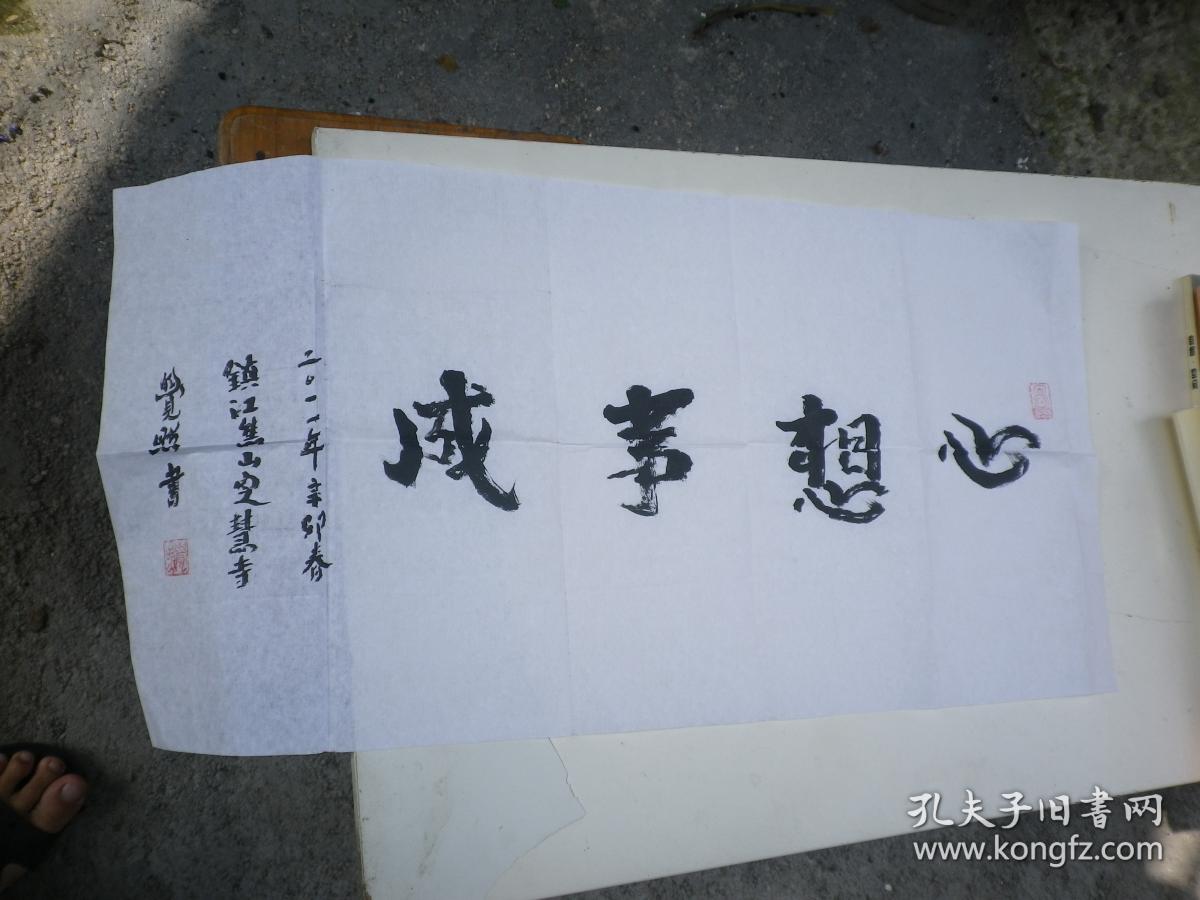 心想事成
二〇一一年辛卯春
鎮江焦山定慧寺
覺照書
孔夫子旧书网
www.kongfz.com